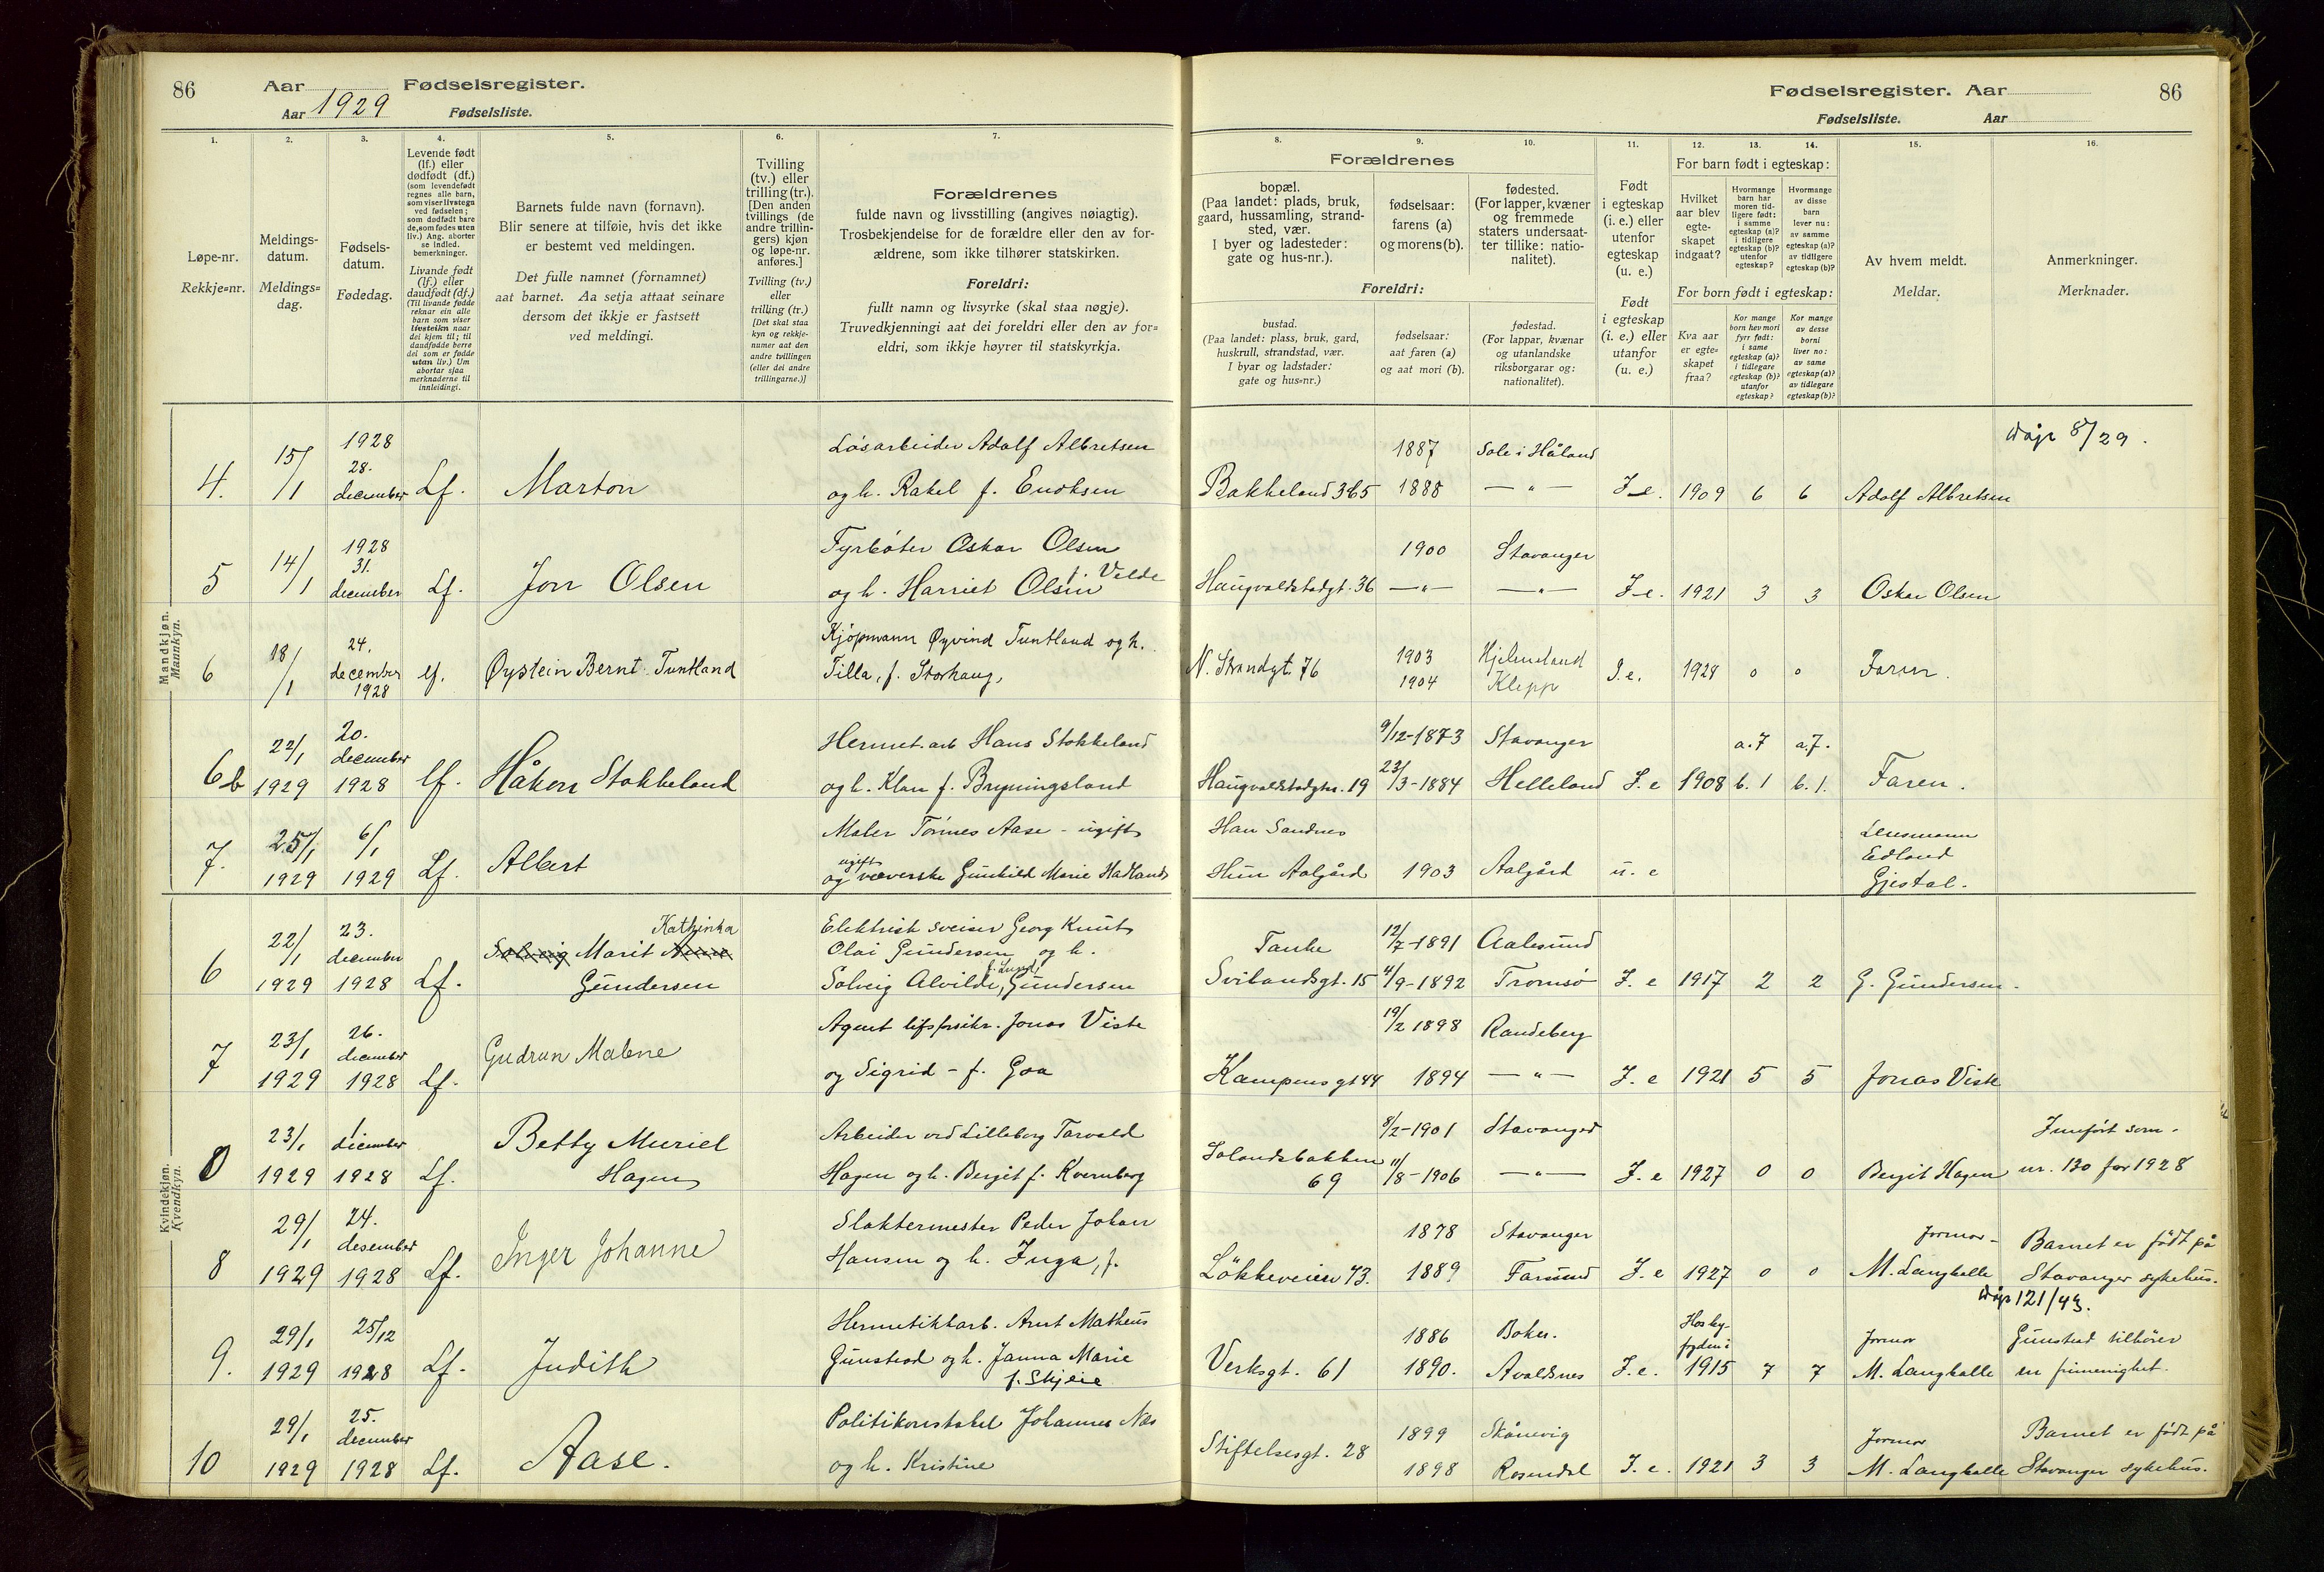 86 Aar Fødselsregister.
Aar 1929 Fødselsliste.
Fødselsregister. Aar 86
Fødselsliste. Aar
1. 2. 3. 4. 5. 6. 7.
8. 9. 10. 11. 12. 13. 14. 15. 16.
Løpe-nr.
Rekkje=nr.
Meldings-
datum.
Meldings=
dag.
Fødsels-
datum.
Fødedag.
Levende født
(lf.) eller
dødfødt (df.)
(som levendefødt
regnes alle barn,
som viser livstegn
ved fødselen;
som dødfødt bare
de, som fødes uten
liv.) Ang. aborter
se indled.
bemerkninger.
Livande født
(lf.) eller
daudfødt (df.)
(Til livande fødde
reknar ein alle
barn som viser
livsteikn naar
dei kjem til; til
daudfødde berre
dei som er fødde
utan liv.) Um
abortar sjaa
merknaderne til
innleidingi.
Barnets fulde navn (fornavn).
Blir senere at tilføie, hvis det ikke
er bestemt ved meldingen.
Det fulle namnet (fornamnet)
aat barnet. Aa setja attaat seinare
dersom det ikkje er fastsett
ved meldingi.
Tvilling
(tv.) eller
trilling (tr.).
[Den anden
tvillings (de
andre trillin-
gers) kjøn
og løpe-nr.
anføres.]
Tvilling (tv.)
eller
trilling (tr.)
[Det skal staa
kyn og rekkje-
numer aat den
andre tvillingen
(eller dei andre
trillingarne.)]
Forældrenes
fulde navn og livsstilling (angives nøiagtig).
Trosbekjendelse for de forældre eller den av for-
ældrene, som ikke tilhører statskirken.
Foreldri:
fullt namn og livsyrke (skal staa nøgje).
Truvedkjenningi aat dei foreldri eller den av for=
eldri, som ikkje høyrer til statskyrkja.
Forældrenes
bopæl.
(Paa landet: plads, bruk,
gaard, hussamling, strand-
sted, vær.
I byer og ladesteder:
gate og hus-nr.).
fødselsaar:
farens (a)
og morens (b).
fødested.
(For lapper, kvæner
og fremmede
staters undersaat-
ter tillike: natio-
nalitet).
Foreldri:
bustad.
(Paa landet: plass, bruk, gard,
huskrull, strandstad, vær.
I byar og ladstader:
gate og hus=nr.)
fødselsaar:
aat faren (a)
og aat mori (b).
fødestad.
(For lappar, kvænar
og utanlandske
riksborgarar og:
nationalitet).
Født
i egteskap
(i. e.) eller
utenfor
egteskap
(u. e.)
Født
i egteskap
(i. e.) eller
utanfor
(u. e.)
For barn født i egteskap:
Hvilket
aar blev
egte-
skapet
indgaat?
Hvormange
barn har
moren tid-
ligere født:
i samme
egteskap (a)?
i tidligere
egteskap (b)?
utenfor
egteskap?
Hvormange
av disse
barn
lever nu:
av samme
egteskap (a)?
av tidligere
egteskap (b)?
For born født i egteskap:
Kva aar
er egte=
skapet
fraa?
Kor mange
born hev mori
fyrr født:
i same
egteskap (a)?
i tidlegare
egteskap (b)?
utanfor
egteskap?
Kor mange
av desse
borni
liver no:
av same
egteskap (a)?
av tidlegare
egteskap (b)?
Av hvem meldt.
Meldar.
Anmerkninger.
Merknader.
Mandkjøn.
Mannkyn.
4. 15/1 1928 28. december Lf. Marton
Løsarbeider Adolf Albretsen
og h. Rakel f. Enoksen
Bakkeland 365 1887 1888 Sole i Håland — " — I e. 1909 6 6 Adolf Albretsen
Dåp 8/29.
5 14/1 1928 31. december Lf. Jon Olsen
Fyrbøter Oskar Olsen
og h. Harriet Olsen f. Velde
Haugvaldstadgt. 36 1900 — " — Stavanger — " — I e. 1921 3 3 Oskar Olsen
6 18/1 24. december 1928 lf. Øystein Bernt Tuntland
Kjøpmann Øyvind Tuntland og h.
Tilla, f. Storhaug,
N. Strandgt. 76 1903 1904 Hjelmeland Klepp I. e. 1928 0 0 Faren.
6b 22/1 1929 20. december 1928 lf. Håkon Stokkeland
Hermet. arb Hans Stokkeland
og h. Klara f. Bryningsland
Haugvaldstadgt. 19 9/12-1873 23/3-1884 Stavanger Helleland I. e 1908 a. 7 b. 1 a. 7. b. 1. Faren.
7. 25/1 1929 6/1 1929 Lf. Albert
Maler Tønnes Aase - ugift
og ugift væverske Gunhild Marie Hadland
Han Sandnes
Hun Aalgård 1903 Aalgård u. e
Lensmann
Edland
Gjestal.
Kvindekjøn.
Kvendkyn.
6 22/1 1929 23. december 1928 Lf. Solveig Marit Anne Kathinka
Gundersen
Elektrisk sveiser Georg Knut
Olai Gundersen og h.
Solveig Alvilde, f. Lund, Gundersen
Tanke
Svilandsgt. 15 12/7-1891 4/9-1892 Aalesund Tromsø I. e 1917 2 2 G. Gundersen.
7 23/1 1929 26. december 1928 Lf. Gudrun Malene
Agent lifsforsikr. Jonas Viste
og Sigrid - f. Goa
Kampensgt 44 19/2 1898 1894 Randeberg — " — I. e 1921 5 5 Jonas Viste
0 23/1 1929 1. december 1928 Lf. Betty Muriel
Hagen
Arbeider ved Lilleborg Torvald
Hagen og h. Bergit f. Kvernberg
Solandsbakken
69 8/2-1901 11/8-1906 Stavanger — " — I. e 1927 0 0 Bergit Hagen
Innført som
nr. 130 for 1928
8 29/1 1929 24. desember 1928 Lf. Inger Johanne
Slaktermester Peder Johan
Hansen og h. Inga, f.
Løkkeveien 73. 1878 1889 Stavanger Farsund I. e 1927 0 0
Jormor
M. Langhalle
Barnet er født på
Stavanger sykehus.
Dåp 121/43.
9. 29/1 1929 25/12 1928 Lf. Judith
Hermetikkarb. Arnt Matheus
Gunstad og h. Janna Marie
f. Skjeie
Verksgt. 61 1886 1890. Bokn. Avaldsnes I. e. 1915 7 7
Jormor
M. Langhalle
Gunstad tilhører
en frimenighet.
10 29/1 1929 25. december 1928 Lf. Aase.
Politikonstabel Johannes Næs
og h. Kristine
Stiftelsesgt. 28 1899 1898 Skånevig Rosendal I. e. 1921 3 3
Jormor
M. Langhalle
Barnet er født på
Stavanger sykehus.